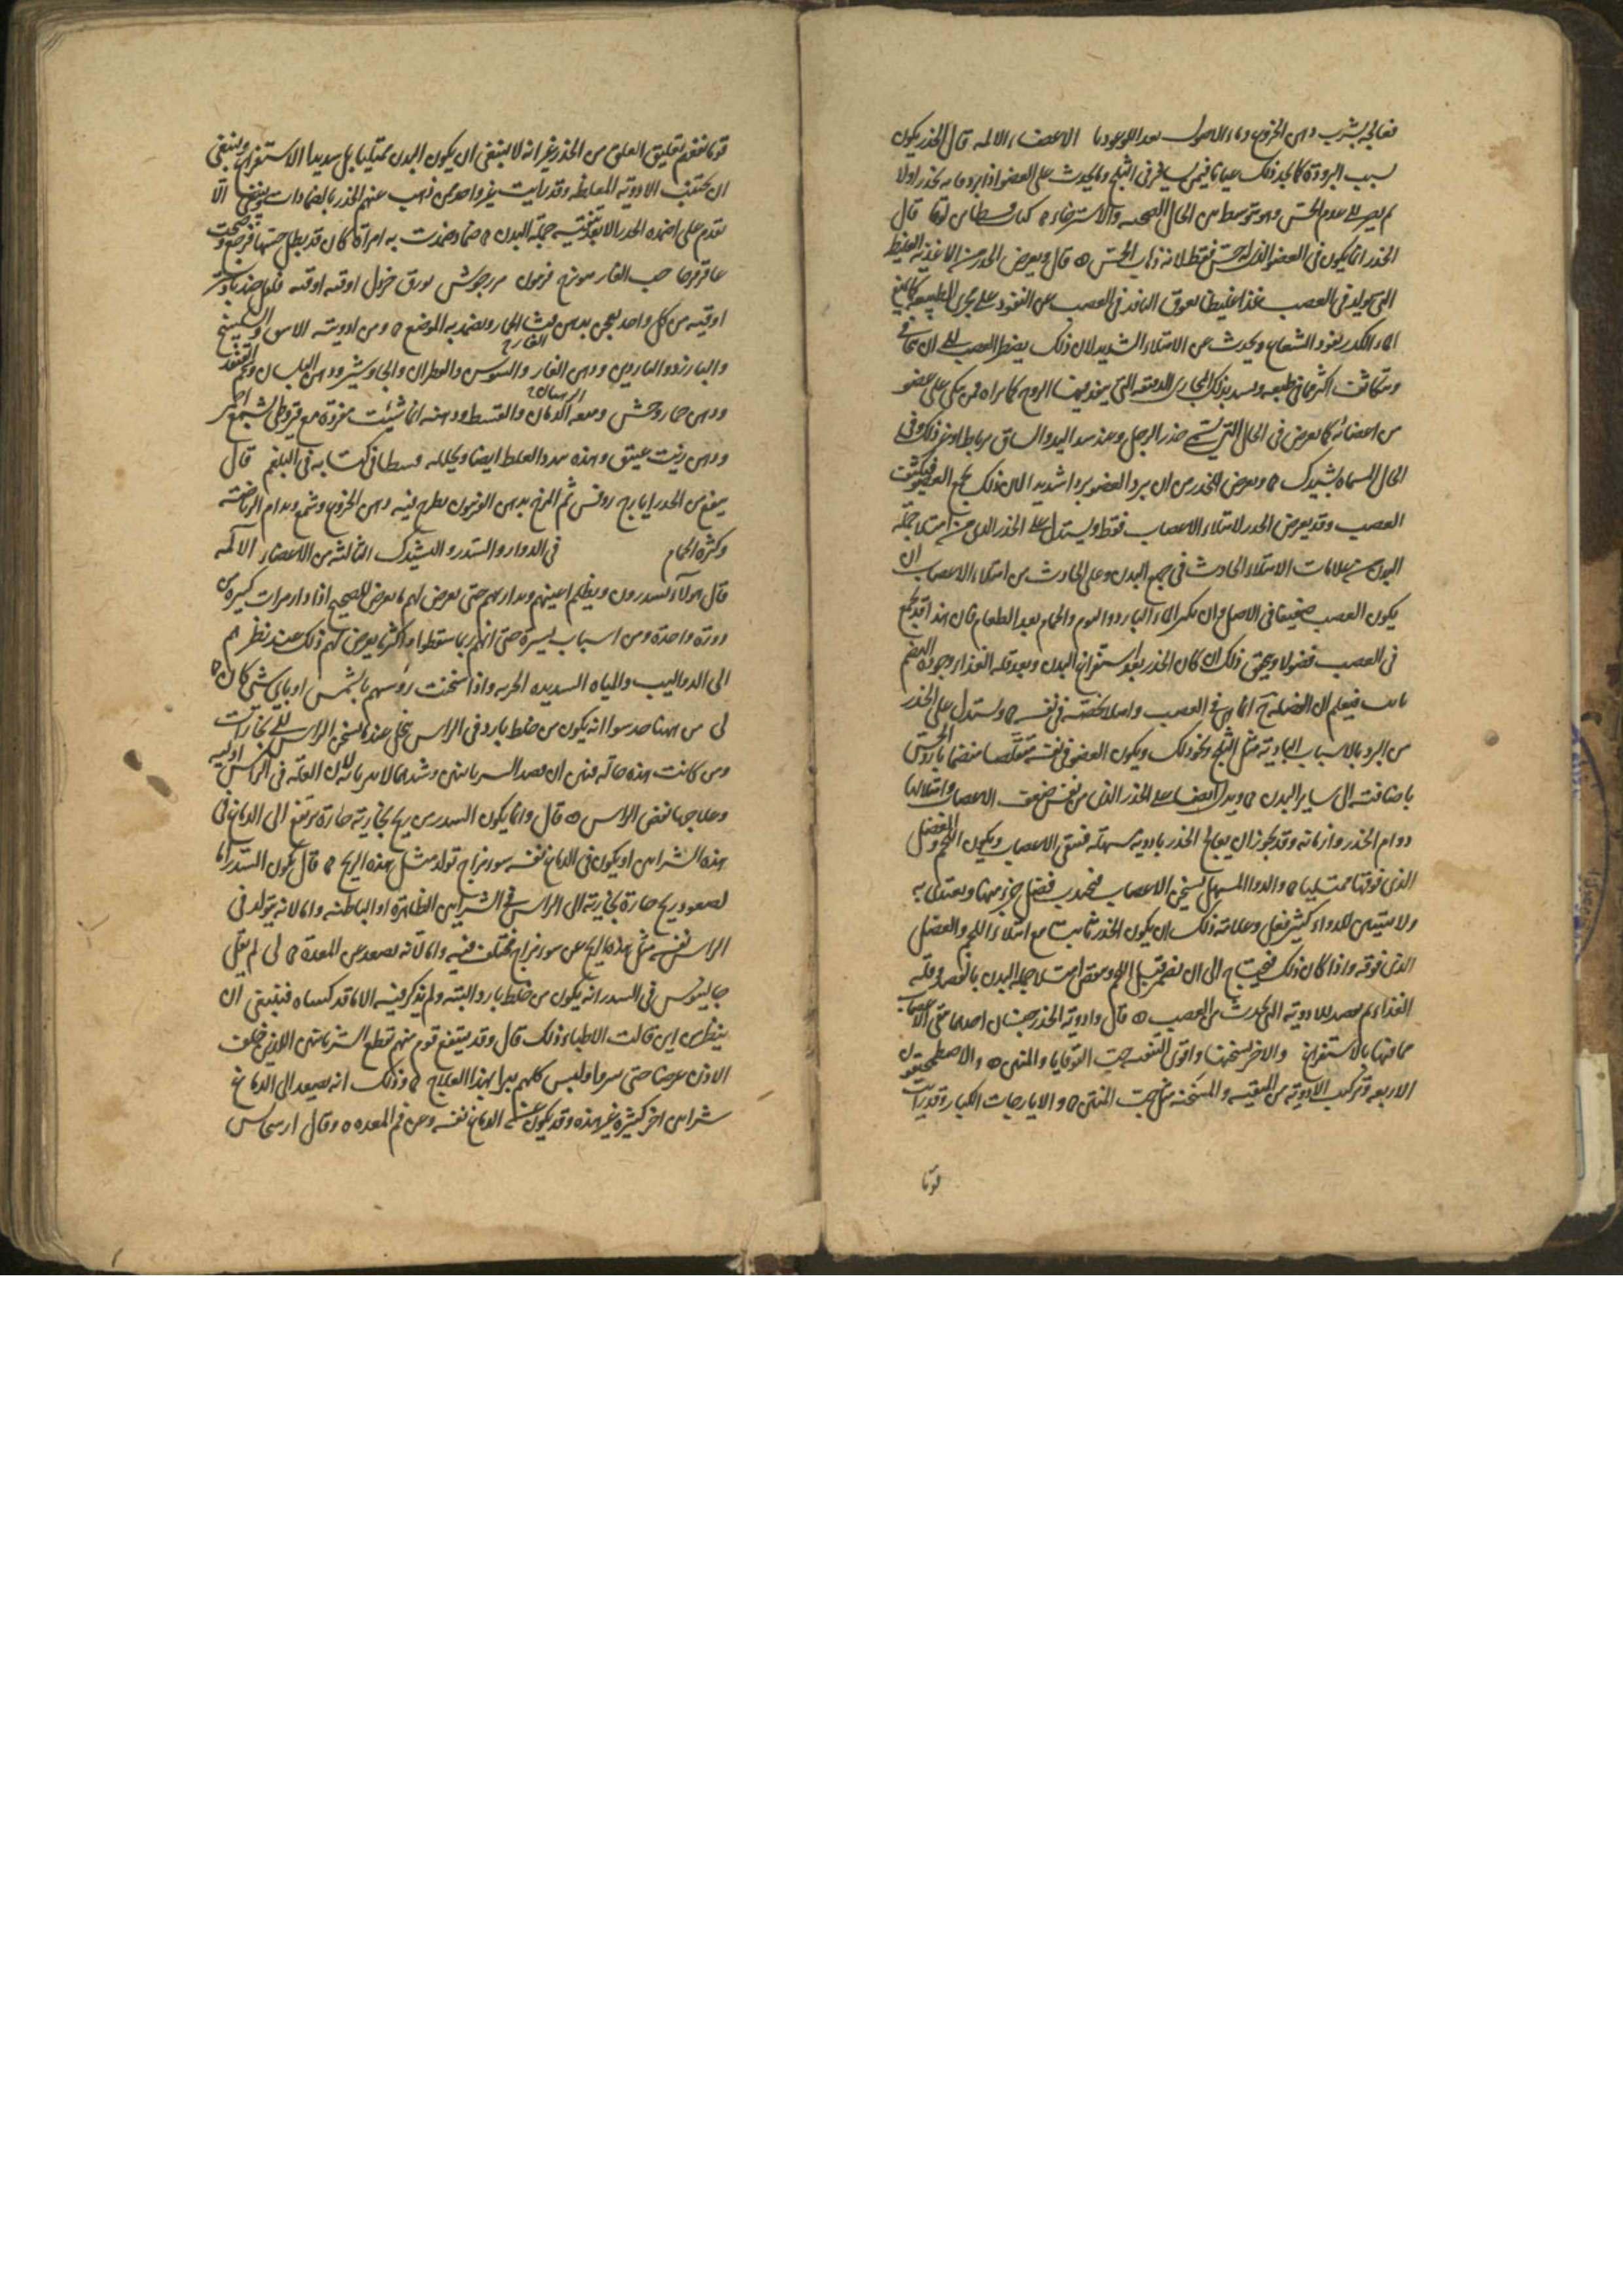 فعالجه بشرب دهن الخروع وماء الاصول الاعضاء الالمه قال الخدر يكون
بسبب البرودة كما نجد ذلك عيانا فيمن يسافر في الثلج وما يحدث على العضو اذا برد فانه يخدر اولا
ثم يصير الى عدم الحس وهو متوسط بين الحال الصحية والاسترخاء قال
الخدر انما يكون في العضو الذي له حس فقط لانه ذهاب الحس قال ويعرض الخدر من الاغذية الغليظة
التي تولد في العصب غذا غليظا يعوق النافذ في العصب عن النفوذ على مجرى الطبيعة كما يمنع
الماء الكدر نفوذ الشعاع ويحدث عن الامتلاء الشديد لان ذلك يضطر العصب الى ان
وتكاثف اكثر مما في طبعه وتنسد بذلك المجاري الدقيقه التي ينفذ فيها الروح كما نراه فيمن يتكي على عضو
من اعضائه كما يعرض في الحال التي تسمى خدر الرجل وعند شد اليد والساق برباط او غير ذلك وفي
الحال المسماه ليثيدك ويعرض الخدر من ان يبرد العضو بردا شديدا لان ذلك يجمع العصب فيكثف
العصب وقد يعرض الخدر لامتلاء الاعصاب فقط ويستدل على الخدر الذي من امتلاء جملة
البدن من علامات الامتلاء الحادث في جميع البدن وعلى الحادث من امتلاء الاعصاب ان
يكون العصب ضعيفا في الاصل وان يكثر الماء البارد والنوم والحمام بعد الطعام فان هذا قد يجمع
في العصب فضولا ويحقق ذلك ان كان الخدر بعد استفراغ البدن وبعد قلة الغذاء وجودة الهضم
فيعلم ان الفضلة انما هي في العصب واصلا تخصه في نفسه ويستدل على الخدر
من البرد بالاسباب البادية مثل الثلج ونحو ذلك ويكون العضو في نفسه متقلصا منقبضا بارد الحس
باضافته الى ساير البدن ويدل ايضا على الخدر الذي من نفس ضعف الاعصاب وامتلائها
دوام الخدر وازمانه وقد يجوز ان يعالج الخدر بادوية مسهلة فتنقى الاعصاب ويكون اللحم والعضل
الذي فوقها ممتليا والدوا المسهل يسخن الاعصاب فتجذب فضل جزء منها ويمتلى به
ولا يتبين للدواء كثير فعل وعلامة ذلك ان يكون الخدر ثابتا مع امتلاء اللحم والعضل
الذي فوقه واذا كان ذلك فيحتاج الى ان تضمر قبل اللحم وتنقص امتلاء جملة البدن بالفصد وقلة
الغذاء ثم تقصد للادوية التي تجذب من العصب قال وادوية الخدر جنسان احدهما تنقي الاعصاب
مما فيها بالاستفراغ والاخر يسخنها واقوى المنقيه حب القوقايا والمنتن والاصطمحيقون
الاربعه وتركب الادوية من المنقية والمسخنة مثل حب المنتن والايارجات الكبار وقد رايت
قوما
قوما نفعهم تعليق العلق من الخدر غير انه لا ينبغي ان يكون البدن ممتليا بل شديد الاستفراغ وينبغي
ان يجتنب الادوية المغلظه وقد رايت غير واحد ممن ذهب عنهم الخدر بالضمادات وينبغي الا
تقدم على اضمده الخدر الا بعد تنقيه جملة البدن ضماد ضمدت به امراة كان قد بطل حسها فرجع وصحت
عاقرقرحا حب الغار ميوزج فربيون مرزجوش بورق خردل اوقيه اوقيه فلفل جندبادستر
اوقيه من كل واحد يعجن بدهن قثاء الحمار ويضمد به الموضع ومن ادويته الاس والسكبينج
والبارزد والماردين ودهن الغار والسوسن والقطران والجاوشير ودهن البلسان وشحم القنفذ
ودهن حمار وحش والقسط ودهنه ايها شيئت مفردة مع قيروطي بشمع احمر
ودهن زيت عتيق وهذه الغلظ ايضا وتحلله قسطا في كتابه في البلغم قال
ينفع من الخدر ايارج روفس ثم المرخ بدهن الفربيون يطرح فيه دهن الخروع وشمع ويدام الرياضة
وكثرة الحمام في الدوار والسدر والليثيدك الثالثة من الاعضاء الالمه
قال هولاء يسدرون ويظلم اعينهم ويدار بهم حتى يعرض لهم ما يعرض للصحيح اذا دار مرات كثيرة من
دورة واحدة ومن اسباب يسيرة حتى انهم ربما سقطوا واكثر ما يعرض لهم ذلك عند نظرهم
الى الدواليب والمياه الشديده الجريه واذا سخنت روسهم بالشمس او باي شي كان
لي من ههنا حدسوا انه يكون من خلط بارد في الراس ينحل عندما يسخن الراس الى بخارات
ومن كانت هذه حاله فينبغي ان يفصد الشريانين وشدهما لان العلة في الراس اوليه
وعلاجها نفض الراس قال وانما يكون السدر من ريح بخارية حارة ترتفع الى الدماغ في
هذه الشرايين او يكون في الدماغ نفسه سو مزاج تولد مثل هذه الريح قال يكون السدر اما
لصعود ريح حارة بخارية الى الراس في الشرايين الظاهرة او الباطنه واما لانه يتولد في
الراس نفسه مثل هذه الريح عن سوء مزاج مختلف فيه واما لانه يصعد عن المعدة لي لم يقل
جالينوس في السدر انه يكون من خلط بارد البتة ولم يذكر فيه الا ما قد كتبناه فينبغي ان
ينظر من اين قالت الاطباء ذلك قال وقد ينتفع قوم منهم بقطع الشريانين اللذين خلف
الاذن عرضا حتى يبرءوا وليس كلهم يبرا بهذا العلاج وذلك انه يصعد الى الدماغ
شرايين اخر كثيرة غير هذه وقد يكون الدماغ نفسه وعن فم المعده وقال ارسجانس